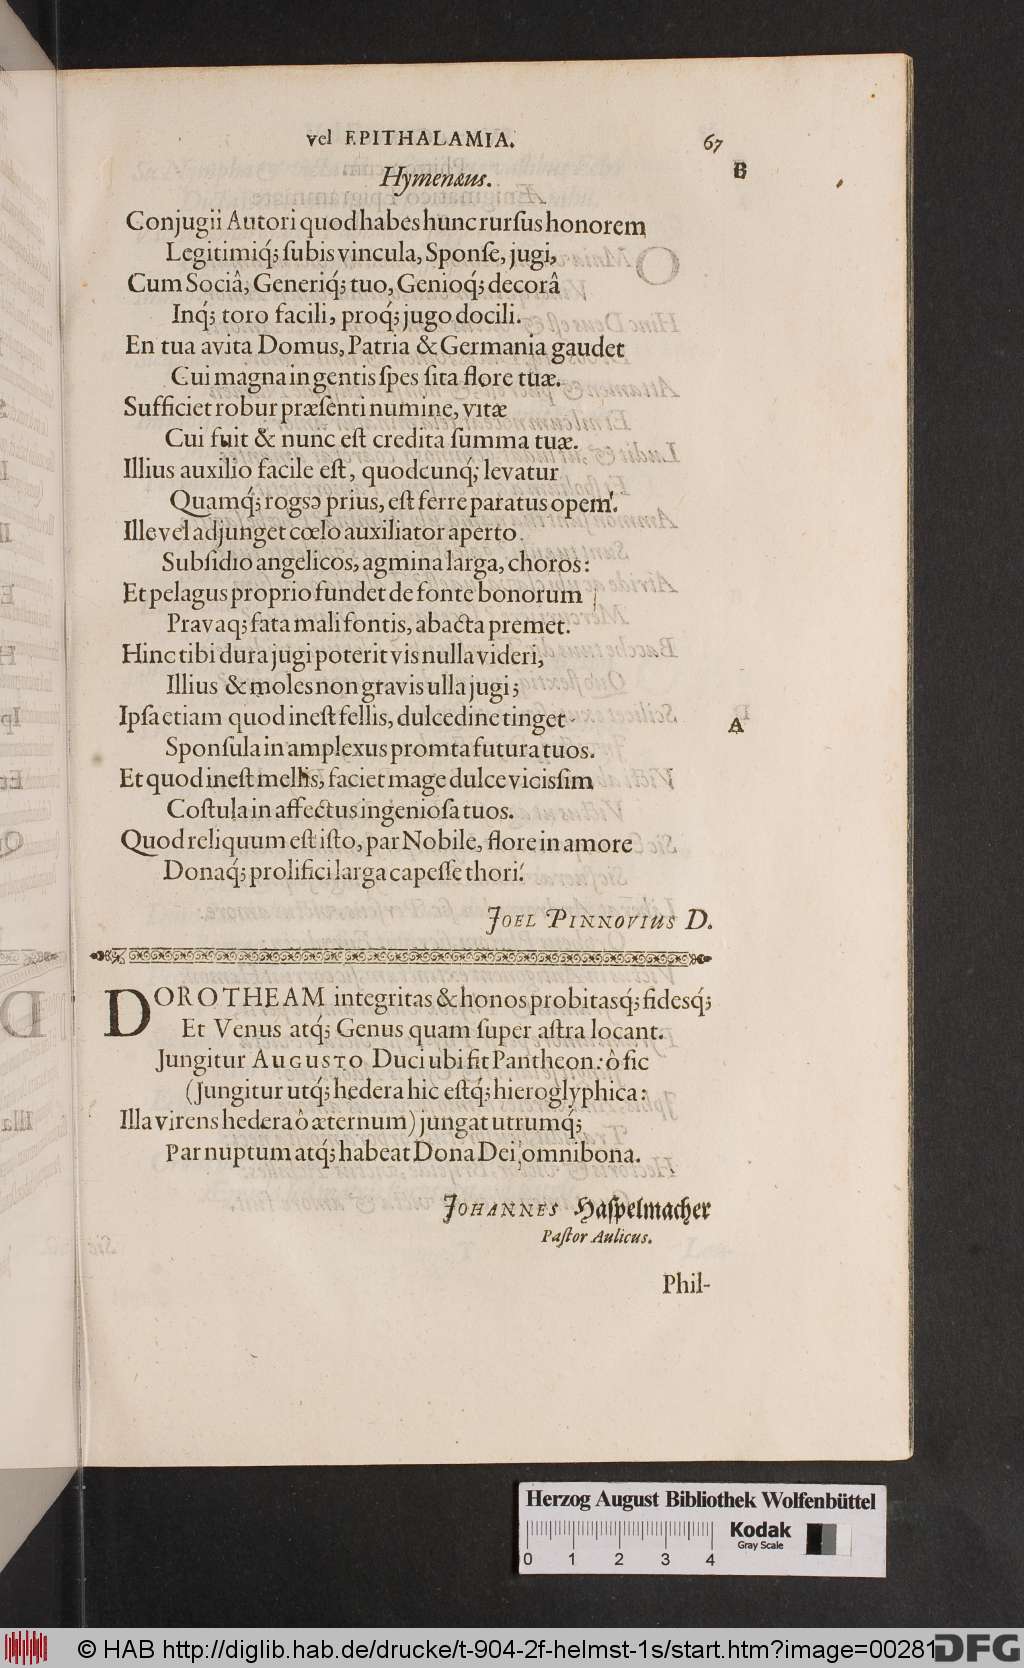 vel EPITHALAMIA. 67
B
Hymenæus.
Conjugii Autori quod habes hunc rursus honorem
Legitimiq́; subis vincula, Sponse, jugi,
Cum Sociâ, Generiq́; tuo, Genioq́; decorâ
Inq́; toro facili, proq́; jugo docili.
En tua avita Domus, Patria & Germania gaudet
Cui magna in gentis spes sita flore tuæ.
Sufficiet robur præsenti numine, vitæ
Cui fuit & nunc est credita summa tuæ.
Illius auxilio facile est, quodcunq́; levatur
Quamq́; rogsɔ prius, est ferre paratus opem.
Ille vel adjunget cœlo auxiliator aperto
Subsidio angelicos, agmina larga, choros:
Et pelagus proprio fundet de fonte bonorum
Pravaq; fata mali fontis, abacta premet.
Hinc tibi dura jugi poterit vis nulla videri,
Illius & moles non gravis ulla jugi;
Ipsa etiam quod inest fellis, dulcedine tinget
A
Sponsula in amplexus promta futura tuos.
Et quod inest mellis, faciet mage dulce vicissim
Costula in affectus ingeniosa tuos.
Quod reliquum est isto, par Nobile, flore in amore
Donaq́; prolifici larga capesse thori.
JOEL PINNOVIUS D.
DOROTHEAM integritas & honos probitasq́; fidesq́;
Et Venus atq́; Genus quam super astra locant.
Jungitur AUGUSTO Duci ubi fit Pantheon: ô sic
(Jungitur utq́; hedera hic estq́; hieroglyphica:
Illa virens hedera ô æternum) jungat utrumq́;
Par nuptum atq́; habeat Dona Dei omnibona.
JOHANNES Haspelmacher
Pastor Aulicus.
Phil-
Herzog August Bibliothek Wolfenbüttel
0 1 2 3 4
Kodak
Gray Scale
© HAB http://diglib.hab.de/drucke/t-904-2f-helmst-1s/start.htm?image=00281
DFG